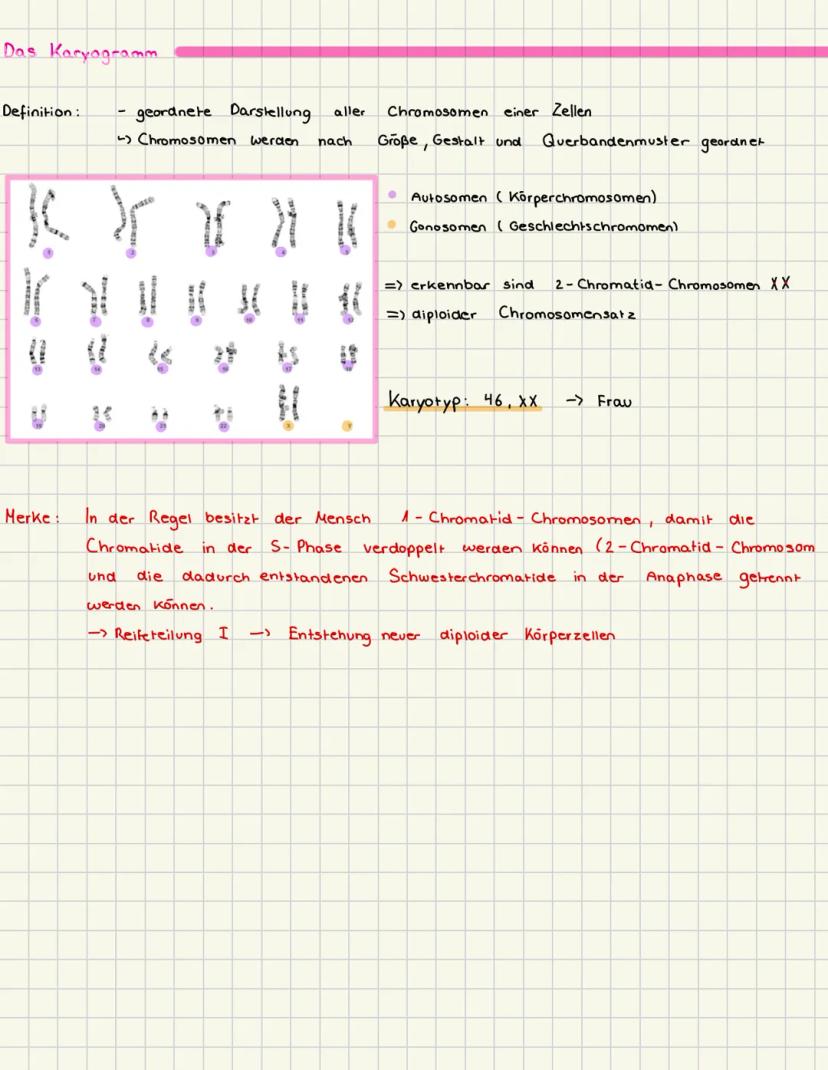 Das Karyogramm
Definition: - geordnete Darstellung aller Chromosomen einer Zellen
↳ Chromosomen werden nach Größe, Gestalt und Querbandenmuster geordnet
Autosomen (Körperchromosomen)
Gonosomen (Geschlechtschromomen)
=> erkennbar sind 2-Chromatid-Chromosomen XX
=> diploider Chromosomensatz
Karyotyp: 46, XX -> Frau
1 2 3 4 5
6 7 8 9 10 11 12
13 14 15 16 17 18
19 20 21 22 X Y
Merke: In der Regel besitzt der Mensch 1-Chromatid-Chromosomen, damit die
Chromatide in der S-Phase verdoppelt werden können (2-Chromatid-Chromosom
und die dadurch entstandenen Schwesterchromatide in der Anaphase getrennt
werden können.
-> Reifeteilung I -> Entstehung neuer diploider Körperzellen